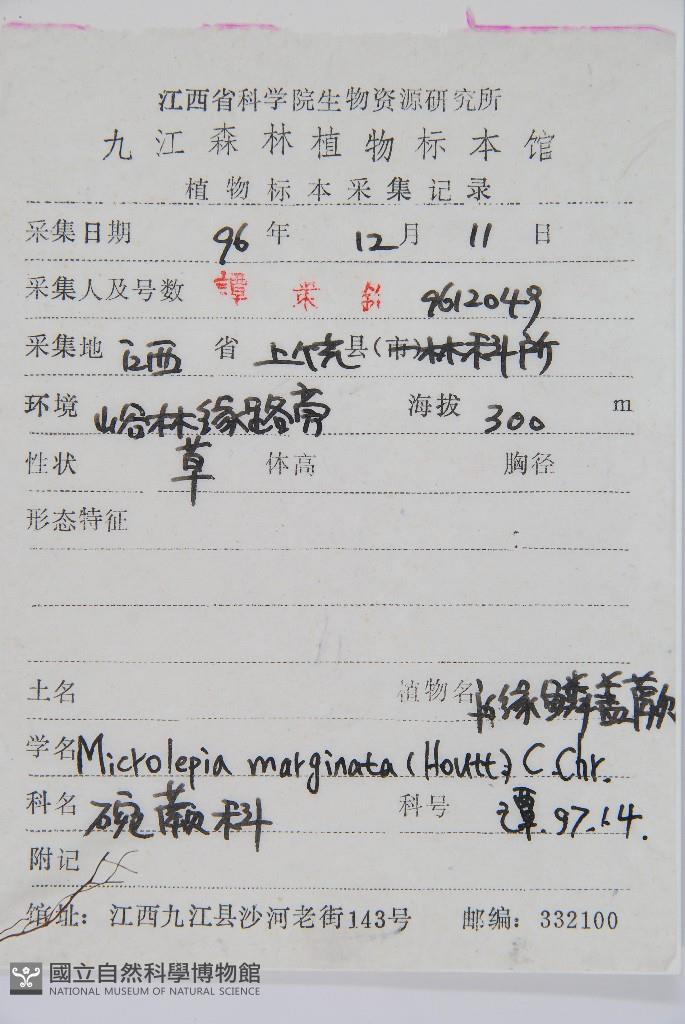 江西省科学院生物资源研究所
九江森林植物标本馆
植物标本采集记录
采集日期 96 年 12 月 11 日
采集人及号数 譚策铭 9612049
采集地 江西 省 上饶 县(市)林科所
环境 山谷林缘路旁 海拔 300 m
性状 草 体高 胸径
形态特征
土名 植物名 边缘鳞盖蕨
学名 Microlepia marginata (Houtt.) C. Chr.
科名 碗蕨科 科号 谭.97.1.4.
附记
馆址：江西九江县沙河老街143号 邮编：332100
國立自然科學博物館
NATIONAL MUSEUM OF NATURAL SCIENCE